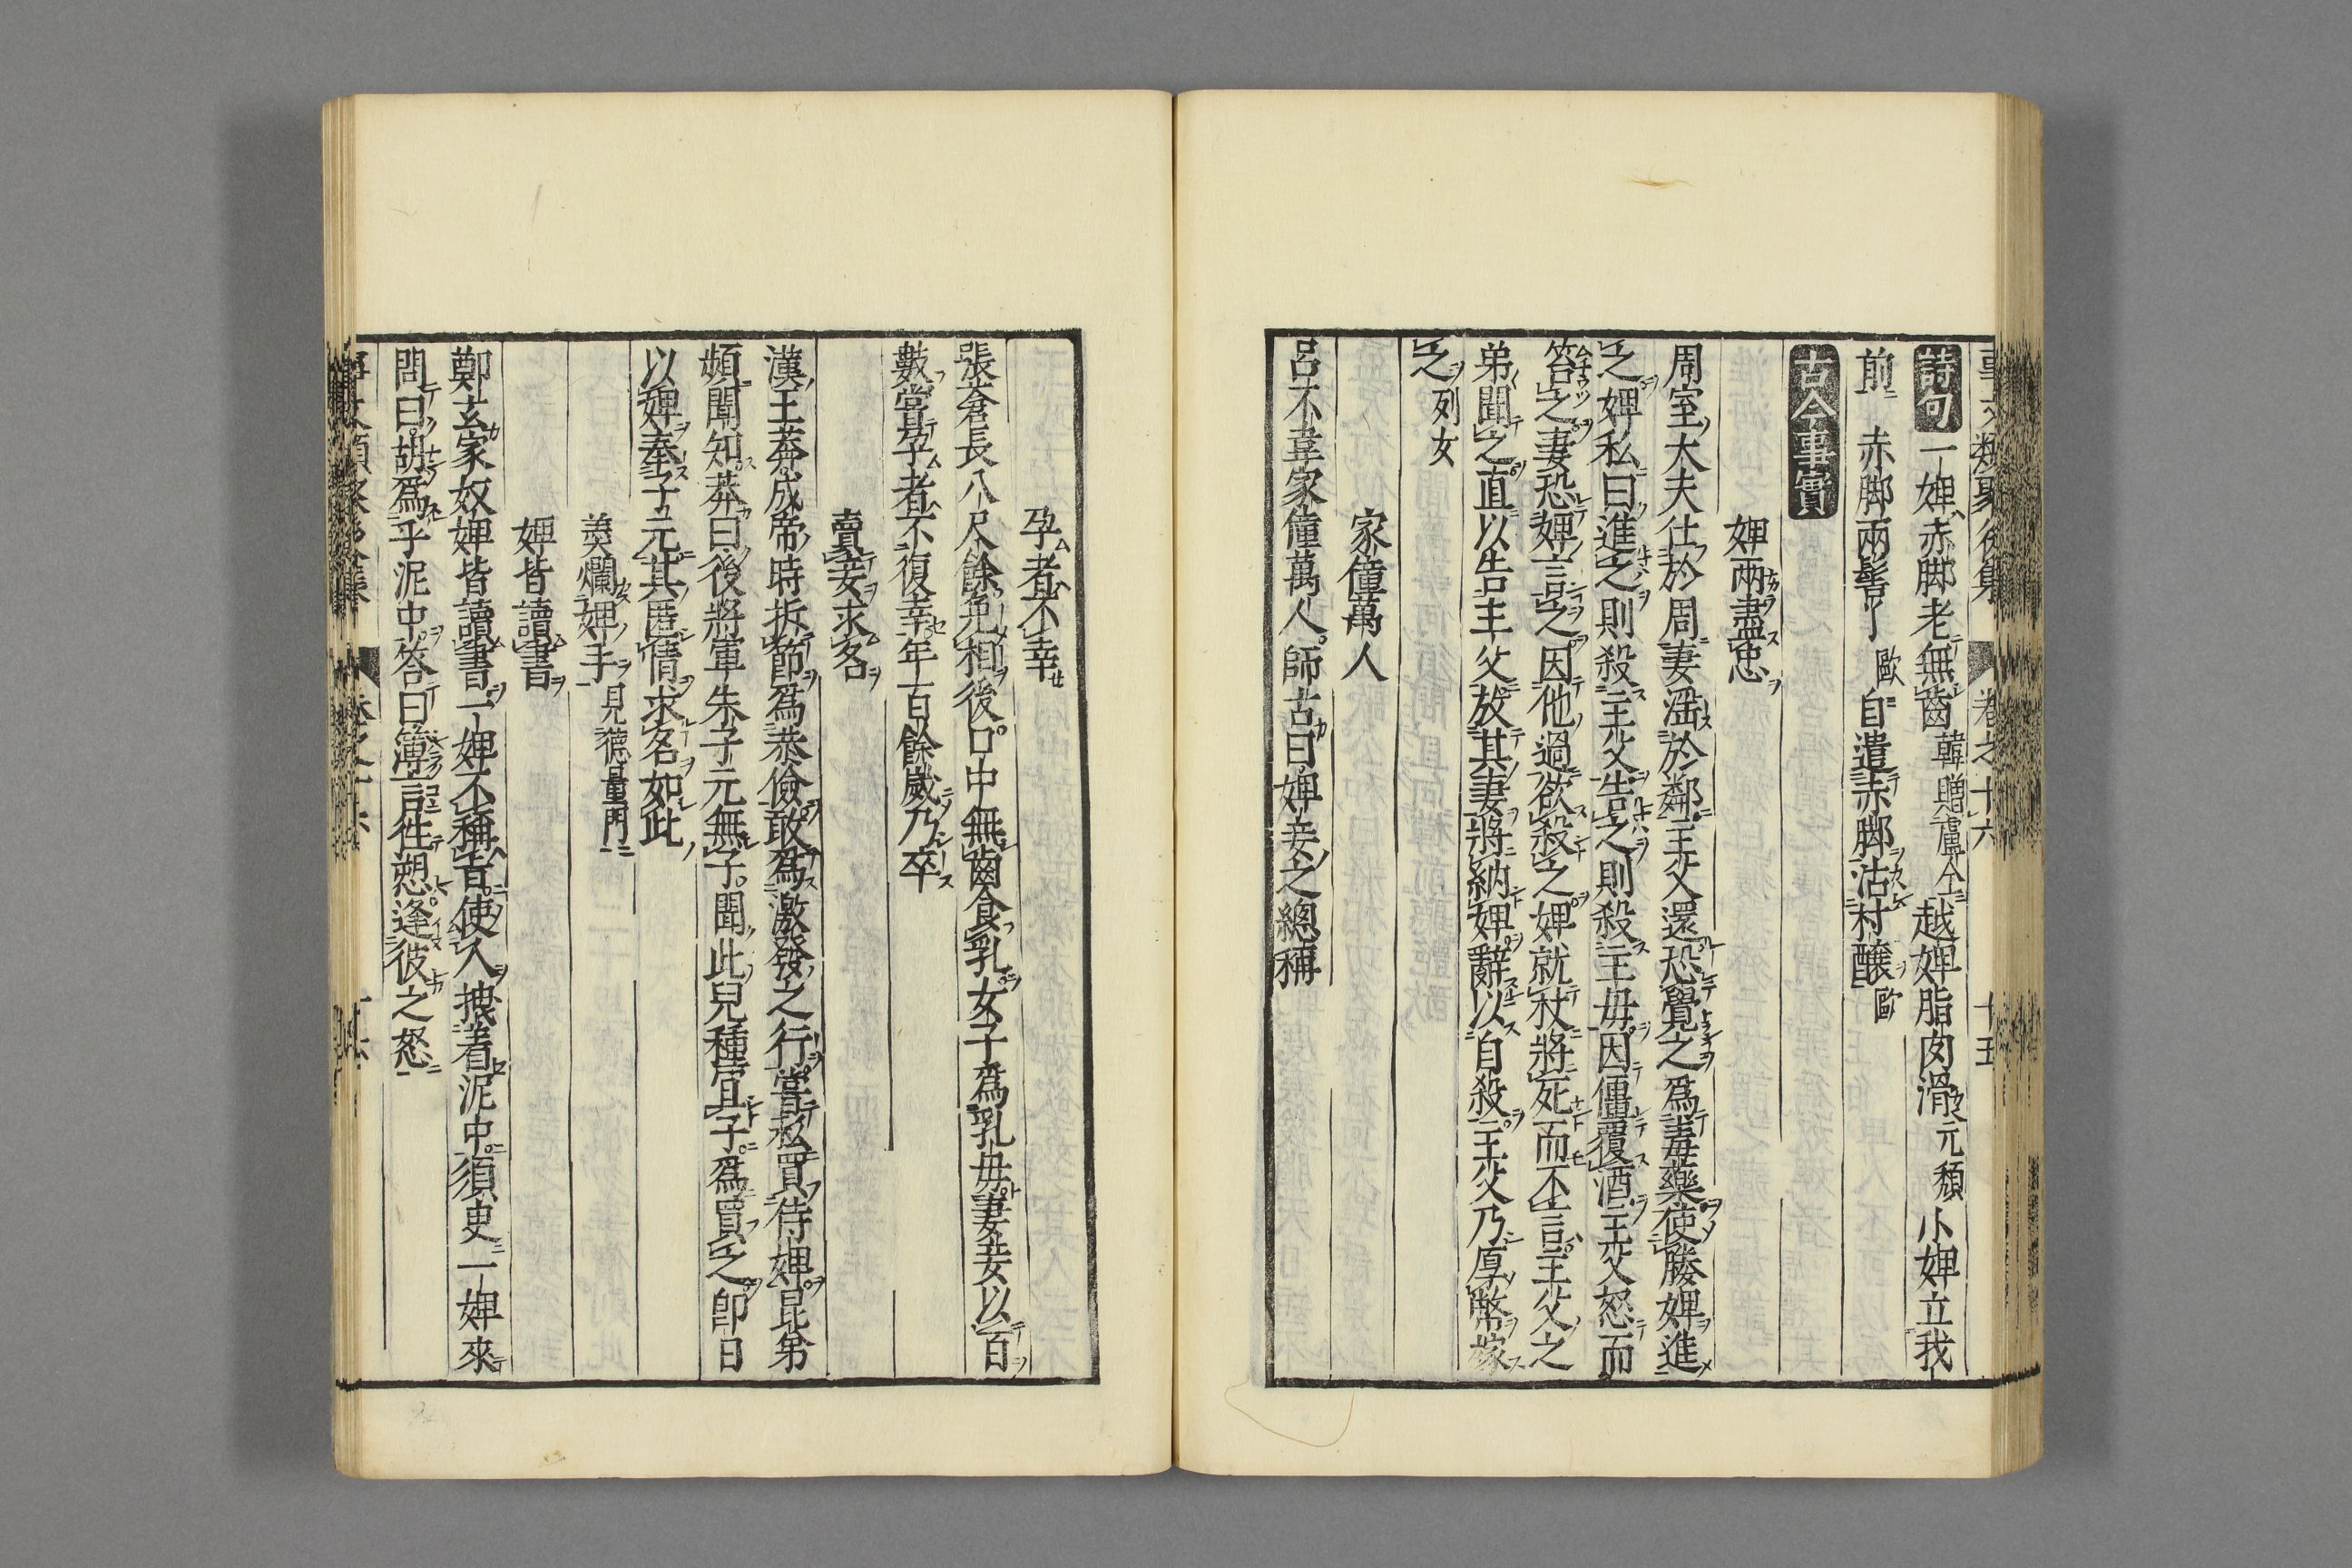 事文類聚後集 卷之十六 十五
詩句 一婢赤脚老無齒 韓贈盧仝 越婢脂肉滑 元稹 小婢立我
前 赤脚兩髻丫 歐 自遣赤脚沽村釀 歐
古今事實
婢兩盡忠
周室大夫仕於周妻淫於鄰主父還恐覺之爲毒藥使媵婢進
之婢私曰進之則殺主父告之則殺主母因僵覆酒主父怒而
笞之妻恐婢言之因他過欲殺之婢就杖將死而不言主父之
弟聞之直以告主父放其妻將納婢辭以自殺主父乃厚幣嫁
之 列女
家僮萬人
呂不韋家僮萬人師古曰婢妾之總稱
孕者不幸
張蒼長八尺餘免相後口中無齒食乳女子爲乳母妻妾以百
數嘗孕者不復幸年百餘歲乃卒
賣妾求名
漢王莽成帝時折節爲恭儉敢爲激發之行嘗私買侍婢昆弟
頗聞知莽曰後將軍朱子元無子聞此兒種宜子爲買之卽日
以婢奉子元其匿情求名如此
羹爛婢手 見德量門
婢皆讀書
鄭玄家奴婢皆讀書一婢不稱旨使人拽着泥中須臾一婢來
問曰胡爲乎泥中答曰薄言往愬逢彼之怒